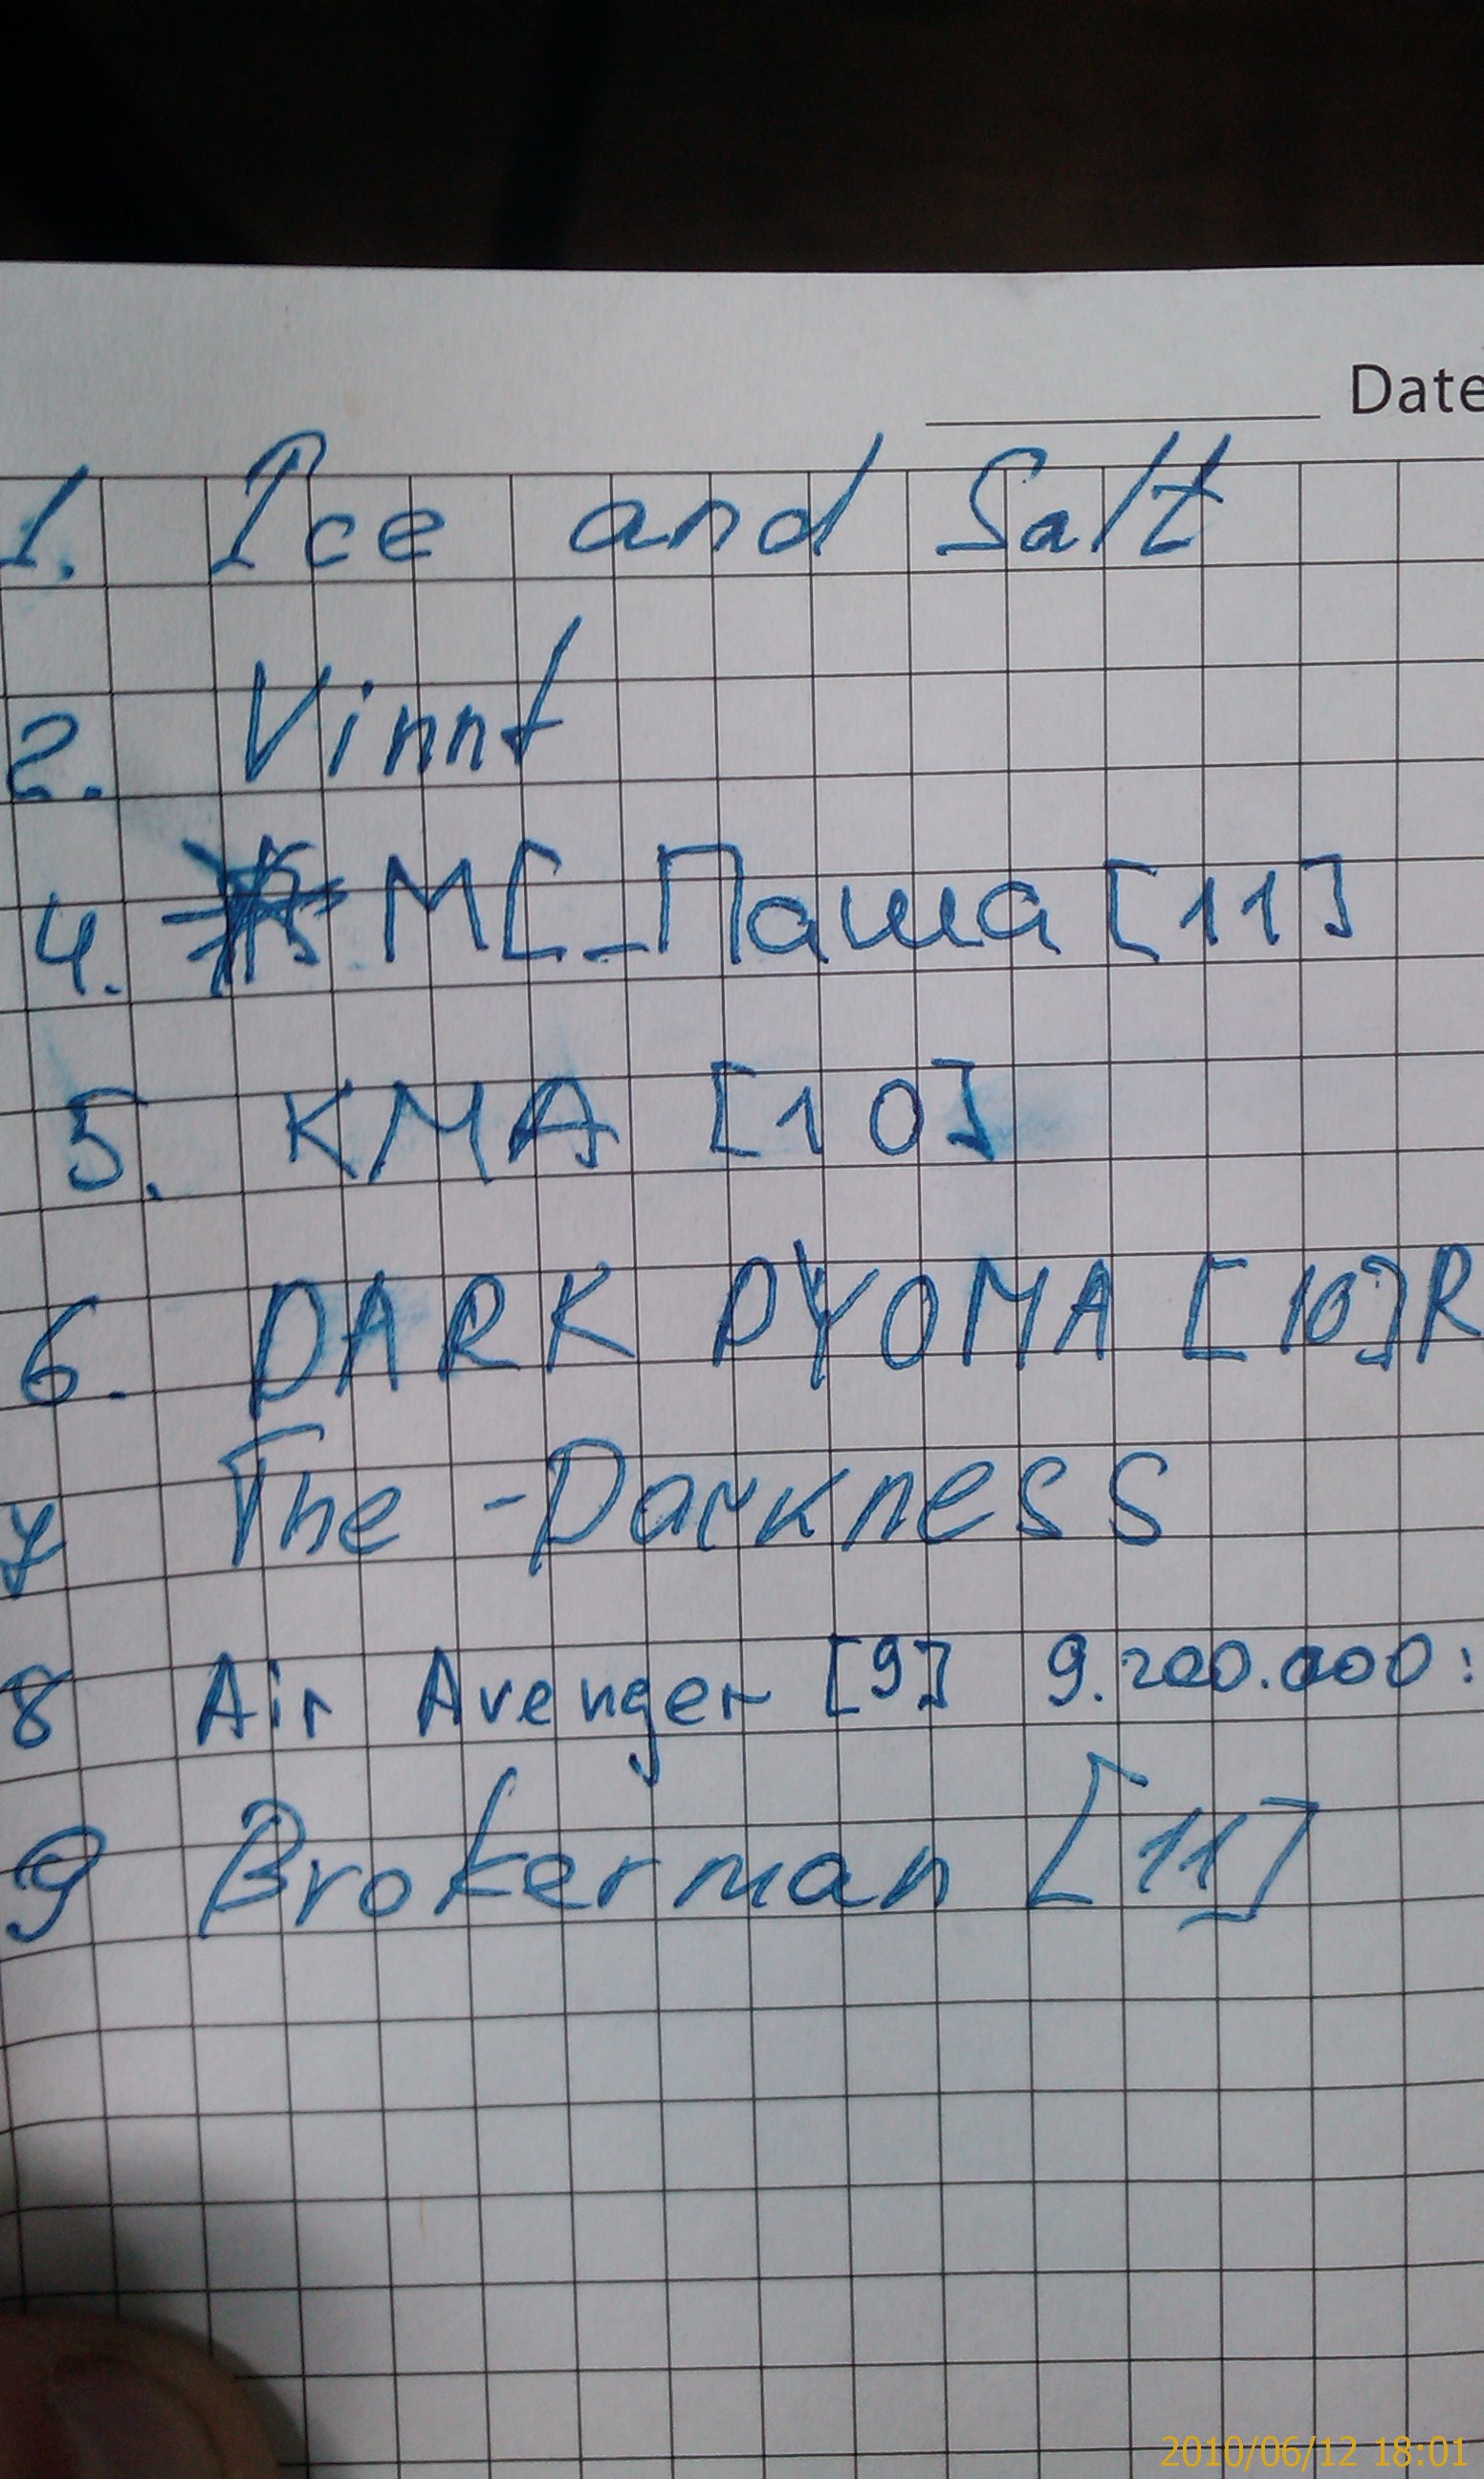 Date
1. Ice and Salt
2. Vinnt
4. MC_Паша [11]
5. KMA [10]
6. DARK DYOMA [10]R
7 The -Darkness
8 Air Avenger [9] 9.200.000:
9 Brokerman [11]
2010/06/12 18:01